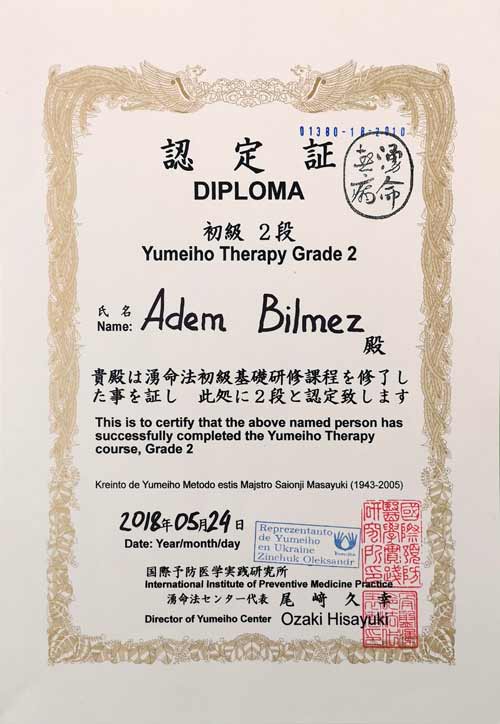 01380-18-2010
認定証
湧命
無病
DIPLOMA
初級 2段
Yumeiho Therapy Grade 2
氏名
Name: Adem Bilmez
殿
貴殿は湧命法初級基礎研修課程を修了し
た事を証し 此処に2段と認定致します
This is to certify that the above named person has
successfully completed the Yumeiho Therapy
course, Grade 2
Kreinto de Yumeiho Metodo estis Majstro Saionji Masayuki (1943-2005)
2018年05月24日
Date: Year/month/day
Reprezentanto
de Yumeiho
en Ukraine
Zinchuk Oleksandr
Yumeiho
国際予防医学実践研究所
International Institute of Preventive Medicine Practice
湧命法センター代表 尾﨑久幸
Director of Yumeiho Center Ozaki Hisayuki
國際預防
醫學實踐
研究所印